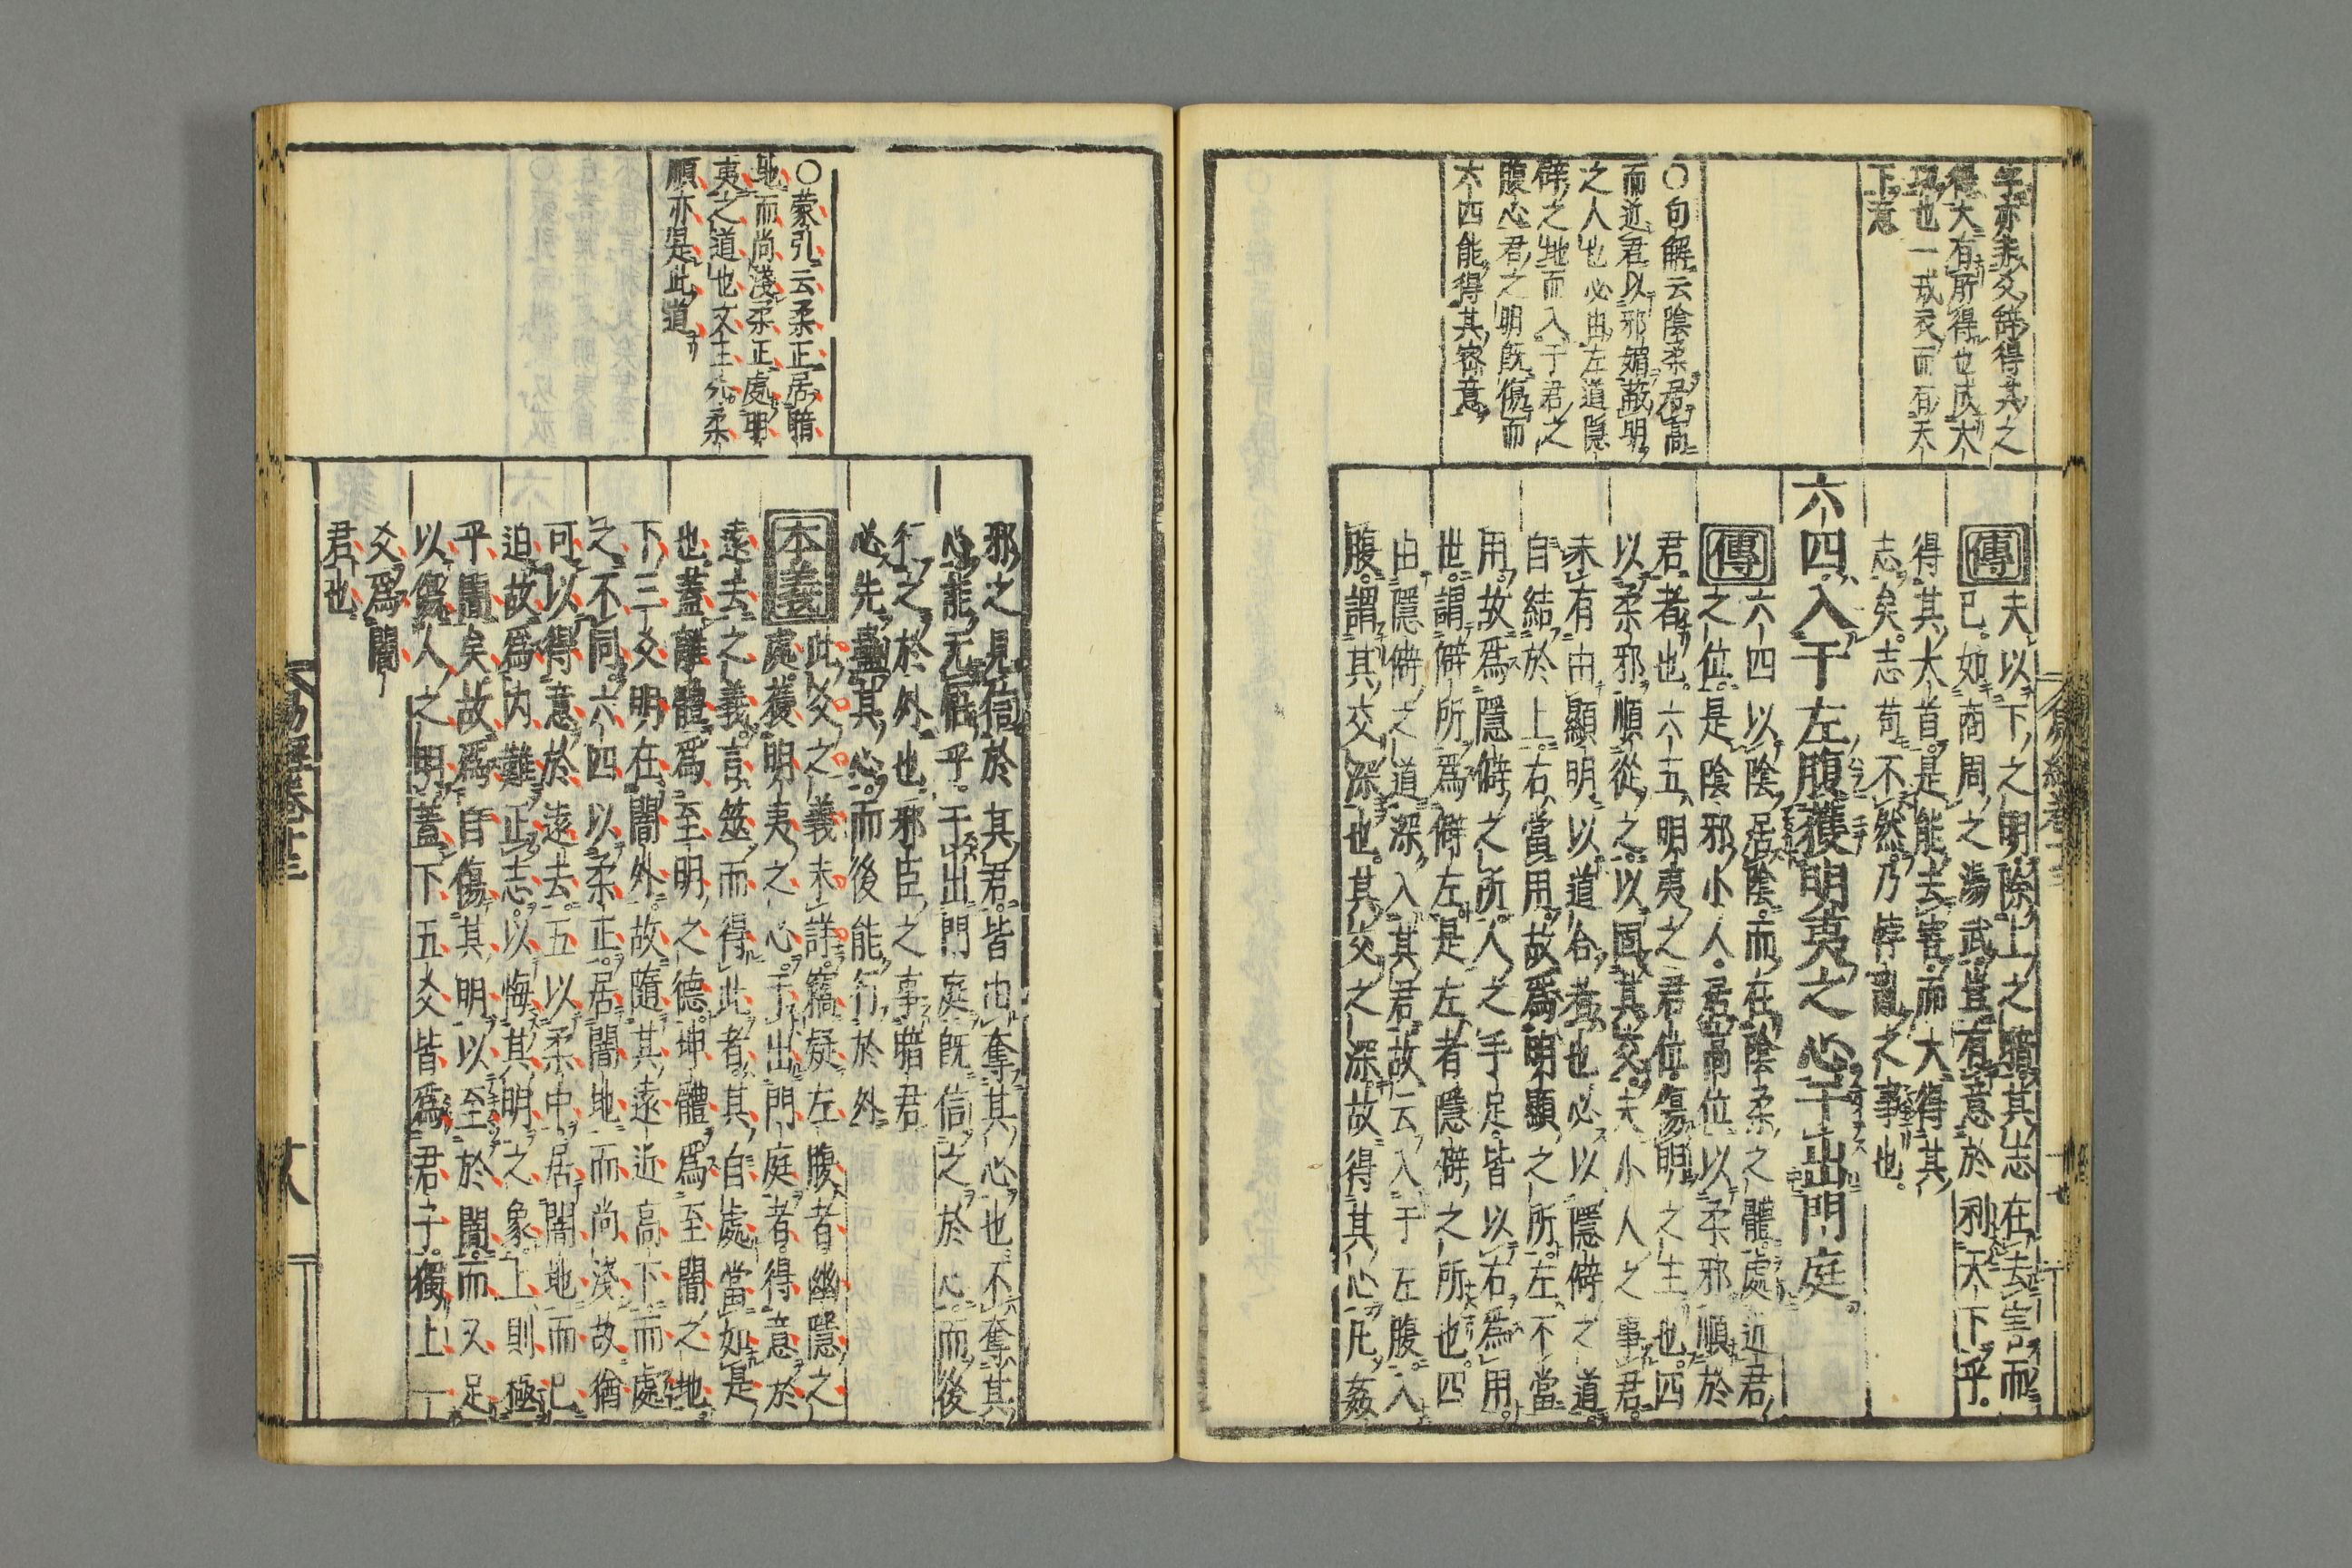 字亦非爻辭得其之
得大有所得也成大
功也一戎衣而有天
下意
○句解云陰柔居高
而近君以邪媚蔽明
之人也必由左道隱
僻之地而入于君之
腹心君之明既傷而
六四能得其密意
傳夫以下之明除上之暗其志在去害而
已如商周之湯武豈有意於利天下乎
得其大首是能去害而大得其
志矣志苟不然乃悖亂之事也
六四入于左腹獲明夷之心于出門庭
傳六四以陰居陰而在陰柔之體處近君
之位是陰邪小人居高位以柔邪順於
君者也六五明夷之君位傷明之主也四
以柔邪順從之以固其交夫小人之事君
未有由顯明以道合者也必以隱僻之道
自結於上右當用故爲明顯之所左不當
用故爲隱僻之所人之手足皆以右爲用
世謂僻所爲僻左是左者隱僻之所也四
由隱僻之道深入其君故云入于左腹入
腹謂其交深也其交之深故得其心凡姦
易經卷十三
邪之見信於其君皆由奪其心也不奪其
心能无悟乎于出門庭既信之於心而後
行之於外也邪臣之事暗君
必先蠱其心而後能行於外
本義此爻之義未詳竊疑左腹者幽隱之
處獲明夷之心于出門庭者得意於
遠去之義言筮而得此者其自處當如是
也蓋離體爲至明之德坤體爲至闇之地
下三爻明在闇外故隨其遠近高下而處
之不同六四以柔正居闇地而尚淺故猶
可以得意於遠去五以柔中居闇地而已
迫故爲内難正志以晦其明之象上則極
乎闇矣故爲自傷其明以至於闇而又足
以傷人之明蓋下五爻皆爲君子獨上一
爻爲闇
君也
○蒙引云柔正居暗
地而尚淺柔正處明
夷之道也文王外柔
順亦是此道
易經卷十三